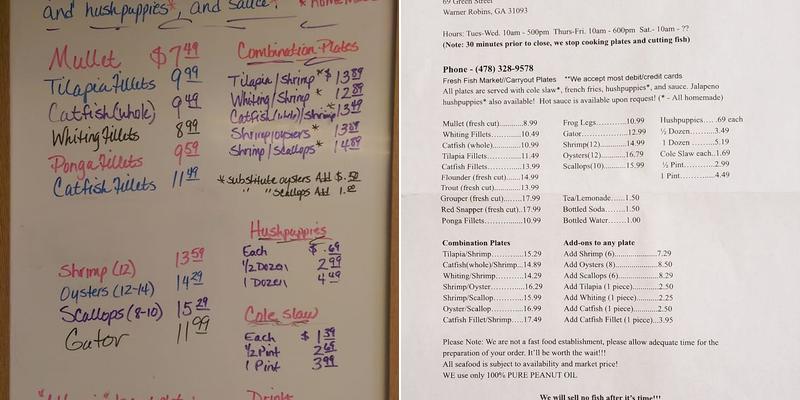 and hushpuppies*, and sauce! *Homemade
Mullet $7.49
Tilapia Fillets 9.99
Catfish (whole) 9.49
Whiting Fillets 8.99
Ponga Fillets 9.59
Catfish Fillets 11.49
Shrimp (12) 13.59
Oysters (12-14) 14.29
Scallops (8-10) 15.29
Gator 11.99
Combination Plates
Tilapia/Shrimp* $13.89
Whiting/Shrimp* 12.89
Catfish(whole)/Shrimp* 13.49
Shrimp/oysters* 13.89
Shrimp/Scallops* 14.89
*substitute oysters Add $.50
" "scallops Add 1.00
Hushpuppies
Each $.69
1/2 Dozen 2.99
1 Dozen 4.49
Cole Slaw
Each $1.39
1/2 Pint 2.69
1 Pint 3.99
Drinks
69 Green Street
Warner Robins, GA 31093
Hours: Tues-Wed. 10am - 500pm Thurs-Fri. 10am - 600pm Sat.- 10am - ??
(Note: 30 minutes prior to close, we stop cooking plates and cutting fish)
Phone - (478) 328-9578
Fresh Fish Market//Carryout Plates **We accept most debit/credit cards
All plates are served with cole slaw*, french fries, hushpuppies*, and sauce. Jalapeno
hushpuppies* also available! Hot sauce is available upon request! (* - All homemade)
Mullet (fresh cut)..........8.99
Whiting Fillets.............10.49
Catfish (whole)............10.99
Tilapia Fillets..............11.49
Catfish Fillets.............13.99
Flounder (fresh cut)......14.99
Trout (fresh cut)..........13.99
Grouper (fresh cut).......17.99
Red Snapper (fresh cut)..17.99
Ponga Fillets...............10.99
Frog Legs..........10.99
Gator...............12.99
Shrimp(12)........14.99
Oysters(12).......16.79
Scallops(10)......15.99
Tea/Lemonade..1.50
Bottled Soda......1.50
Bottled Water.....1.00
Hushpuppies.... .69 each
½ Dozen.......3.49
1 Dozen .......5.19
Cole Slaw each..1.69
½ Pint..........2.99
1 Pint..........4.49
Combination Plates
Tilapia/Shrimp.............15.29
Catfish(whole)/Shrimp...14.89
Whiting/Shrimp............14.29
Shrimp/Oyster..............16.29
Shrimp/Scallop.............15.99
Oyster/Scallop.............16.99
Catfish Fillet/Shrimp.....17.49
Add-ons to any plate
Add Shrimp (6)....................7.29
Add Oysters (8)....................8.50
Add Scallops (6)...................8.29
Add Tilapia (1 piece).............2.50
Add Whiting (1 piece)............2.25
Add Catfish (1 piece).............2.50
Add Catfish Fillet (1 piece)...3.95
Please Note: We are not a fast food establishment, please allow adequate time for the
preparation of your order. It'll be worth the wait!!!
All seafood is subject to availability and market price!
WE use only 100% PURE PEANUT OIL
We will sell no fish after it's time!!!